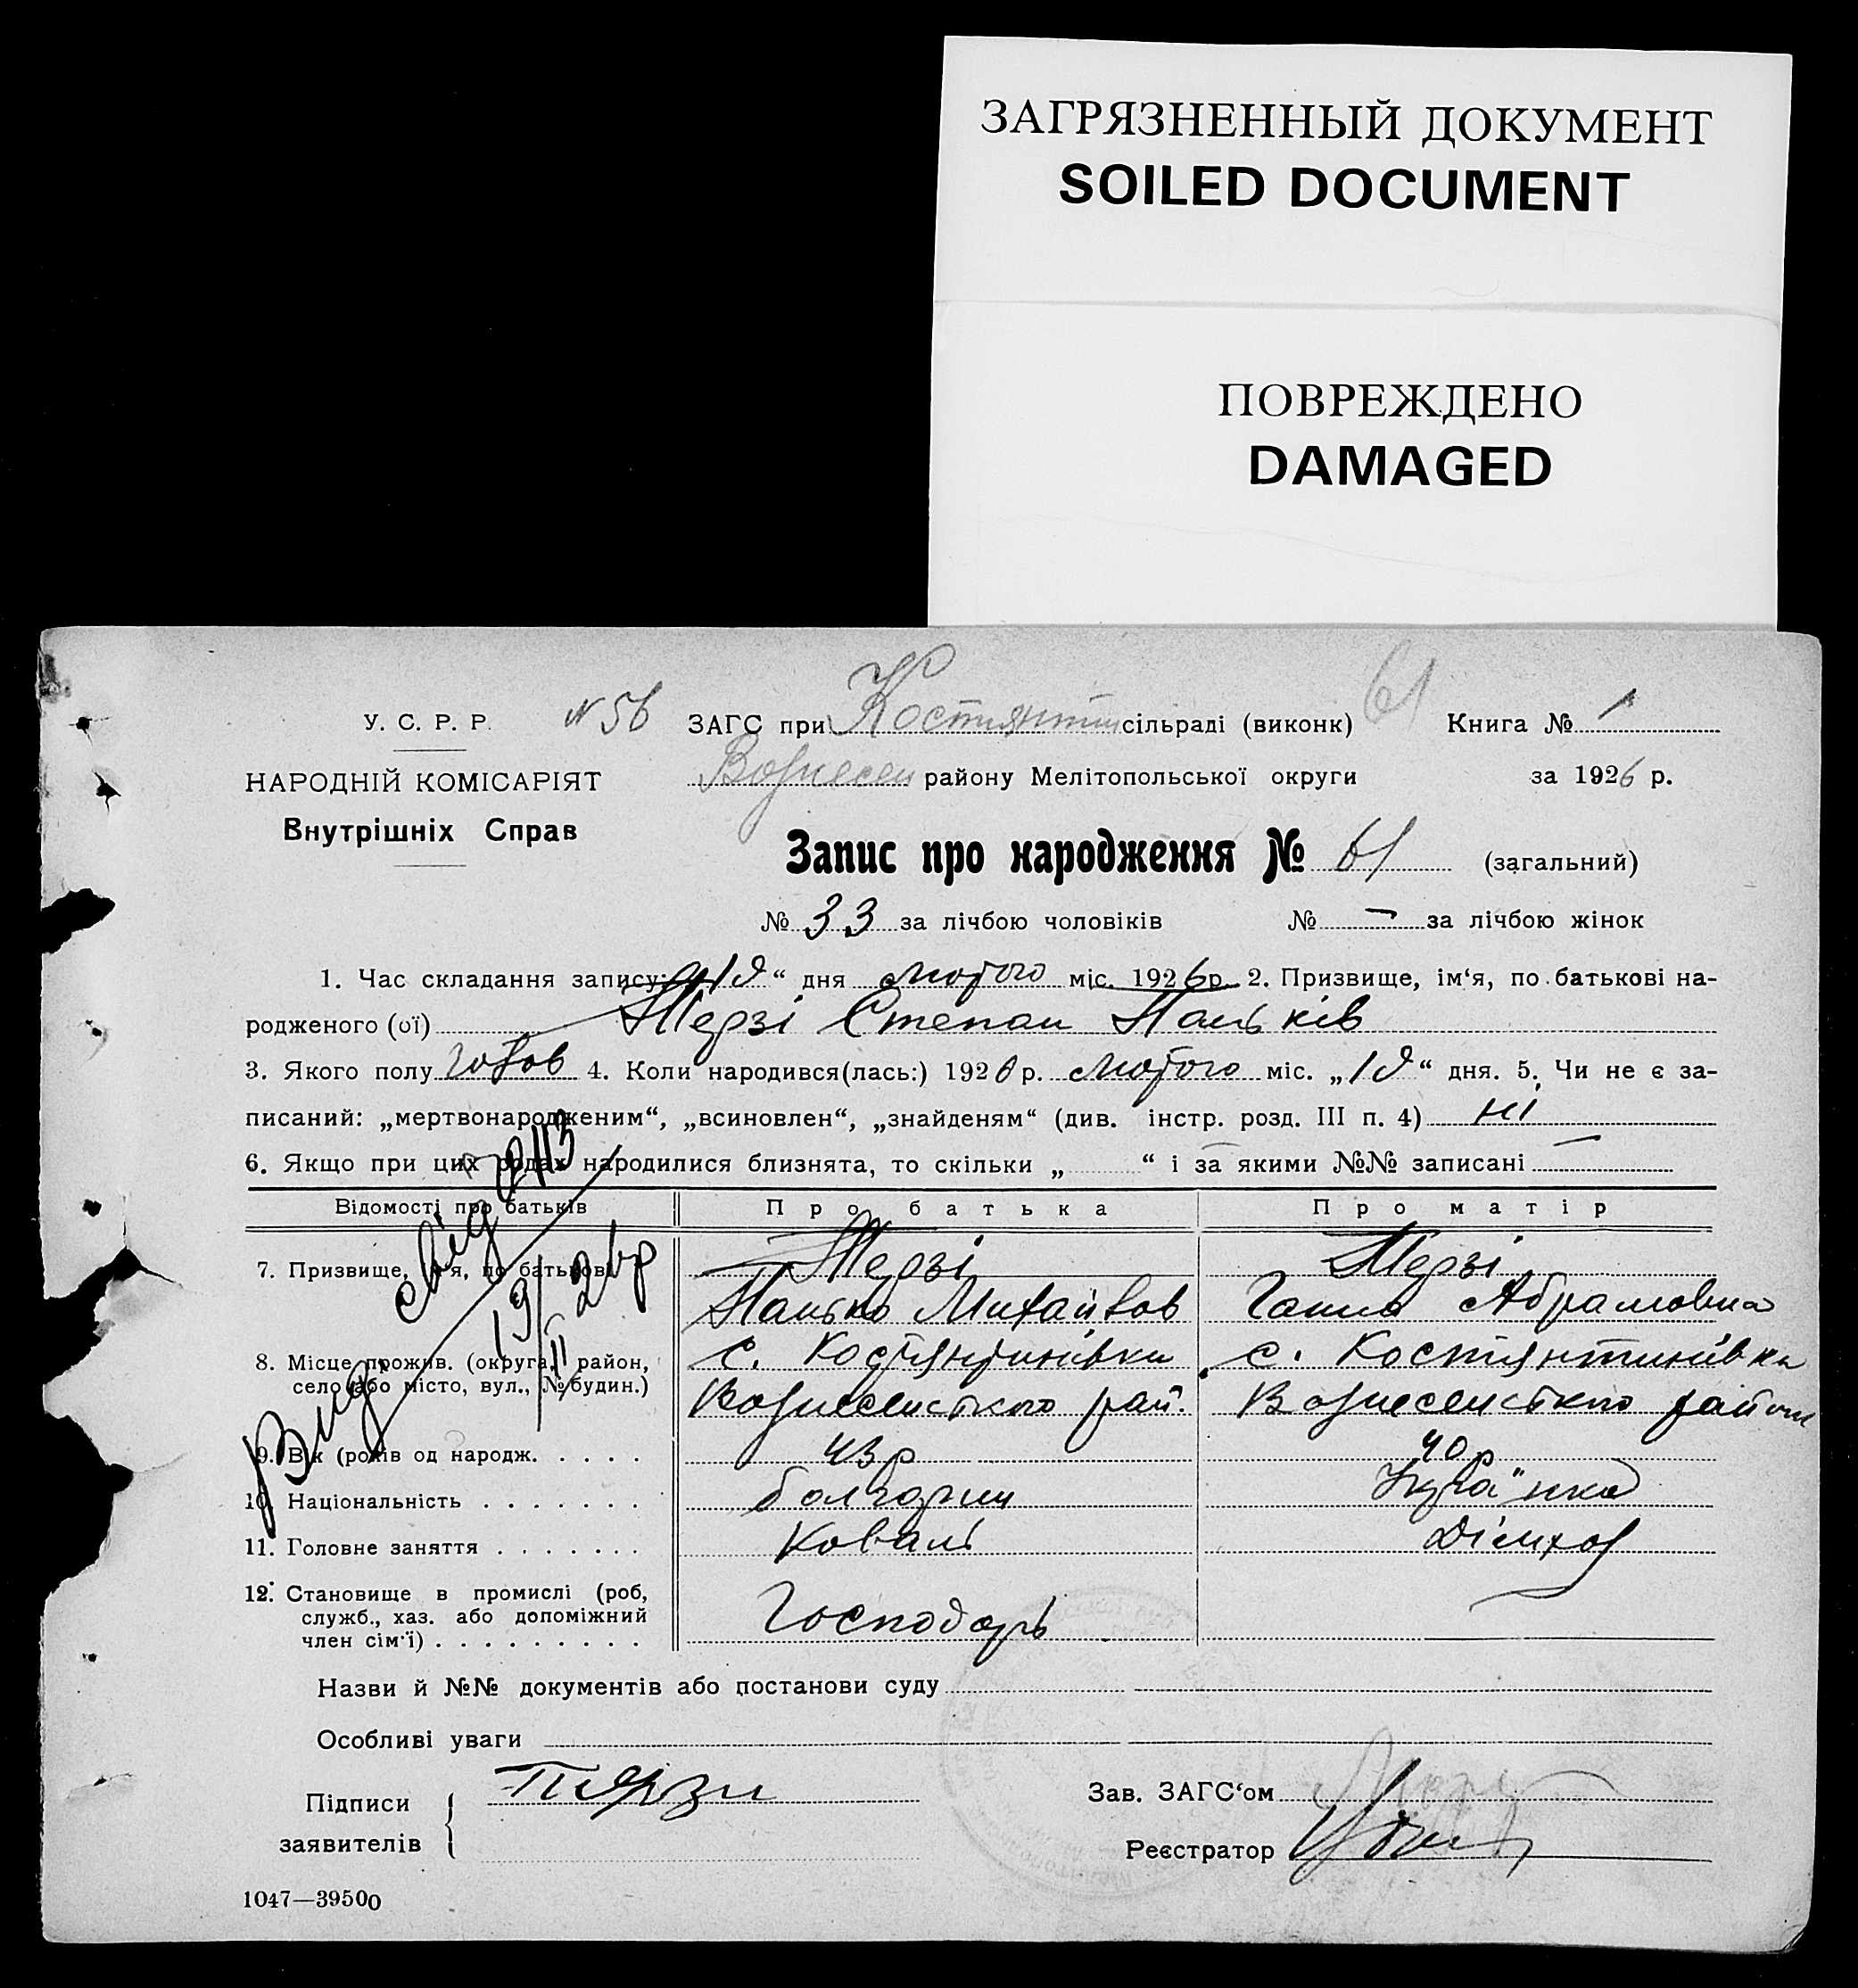 ЗАГРЯЗНЕННЫЙ ДОКУМЕНТ
SOILED DOCUMENT
ПОВРЕЖДЕНО
DAMAGED
У. С. Р. Р. N 56 ЗАГС при Костянтин сільраді (виконк) 61 Книга № 1
НАРОДНІЙ КОМІСАРІЯТ Вознесен району Мелітопольської округи за 1926 р.
Внутрішніх Справ
Запис про народження № 61 (загальний)
№ 33 за лічбою чоловіків № — за лічбою жінок
1. Час складання запису: „19“ дня лютого міс. 1926 р. 2. Призвище, ім‘я, по батькові на-
родженого (ої) Терзі Степан Паньків
3. Якого полу чолов 4. Коли народився(лась:) 1926 р. лютого міс. „19“ дня. 5. Чи не є за-
писаний: „мертвонародженим“, „всиновлен“, „знайденям“ (див. інстр. розд. III п. 4) ні
6. Якщо при цих родах народилися близнята, то скільки „ “ і за якими №№ записані —
Відомості про батьків Про батька Про матір
7. Призвище, ім‘я, по батькові Терзі Терзі
Панько Михайлов Ганна Абрамовна
8. Місце прожив. (округа, район, с. Костянтинівки с. Костянтинівки
село або місто, вул., № будин.) Вознесенського рай. Вознесенського району
9. Вік (років од народж. . . . . 43 р 40 р
10. Національність . . . . . . . болгарин Укра"нка
11. Головне заняття . . . . . . . Коваль
12. Становище в промислі (роб,
служб., хаз. або допоміжний Господарь
член сім‘ї) . . . . . . . . .
Вид. свід 19/II 26р
Назви й №№ документів або постанови суду
Особливі уваги
Підписи Тярзи Зав. ЗАГС‘ом
заявителів Реєстратор
1047—39500